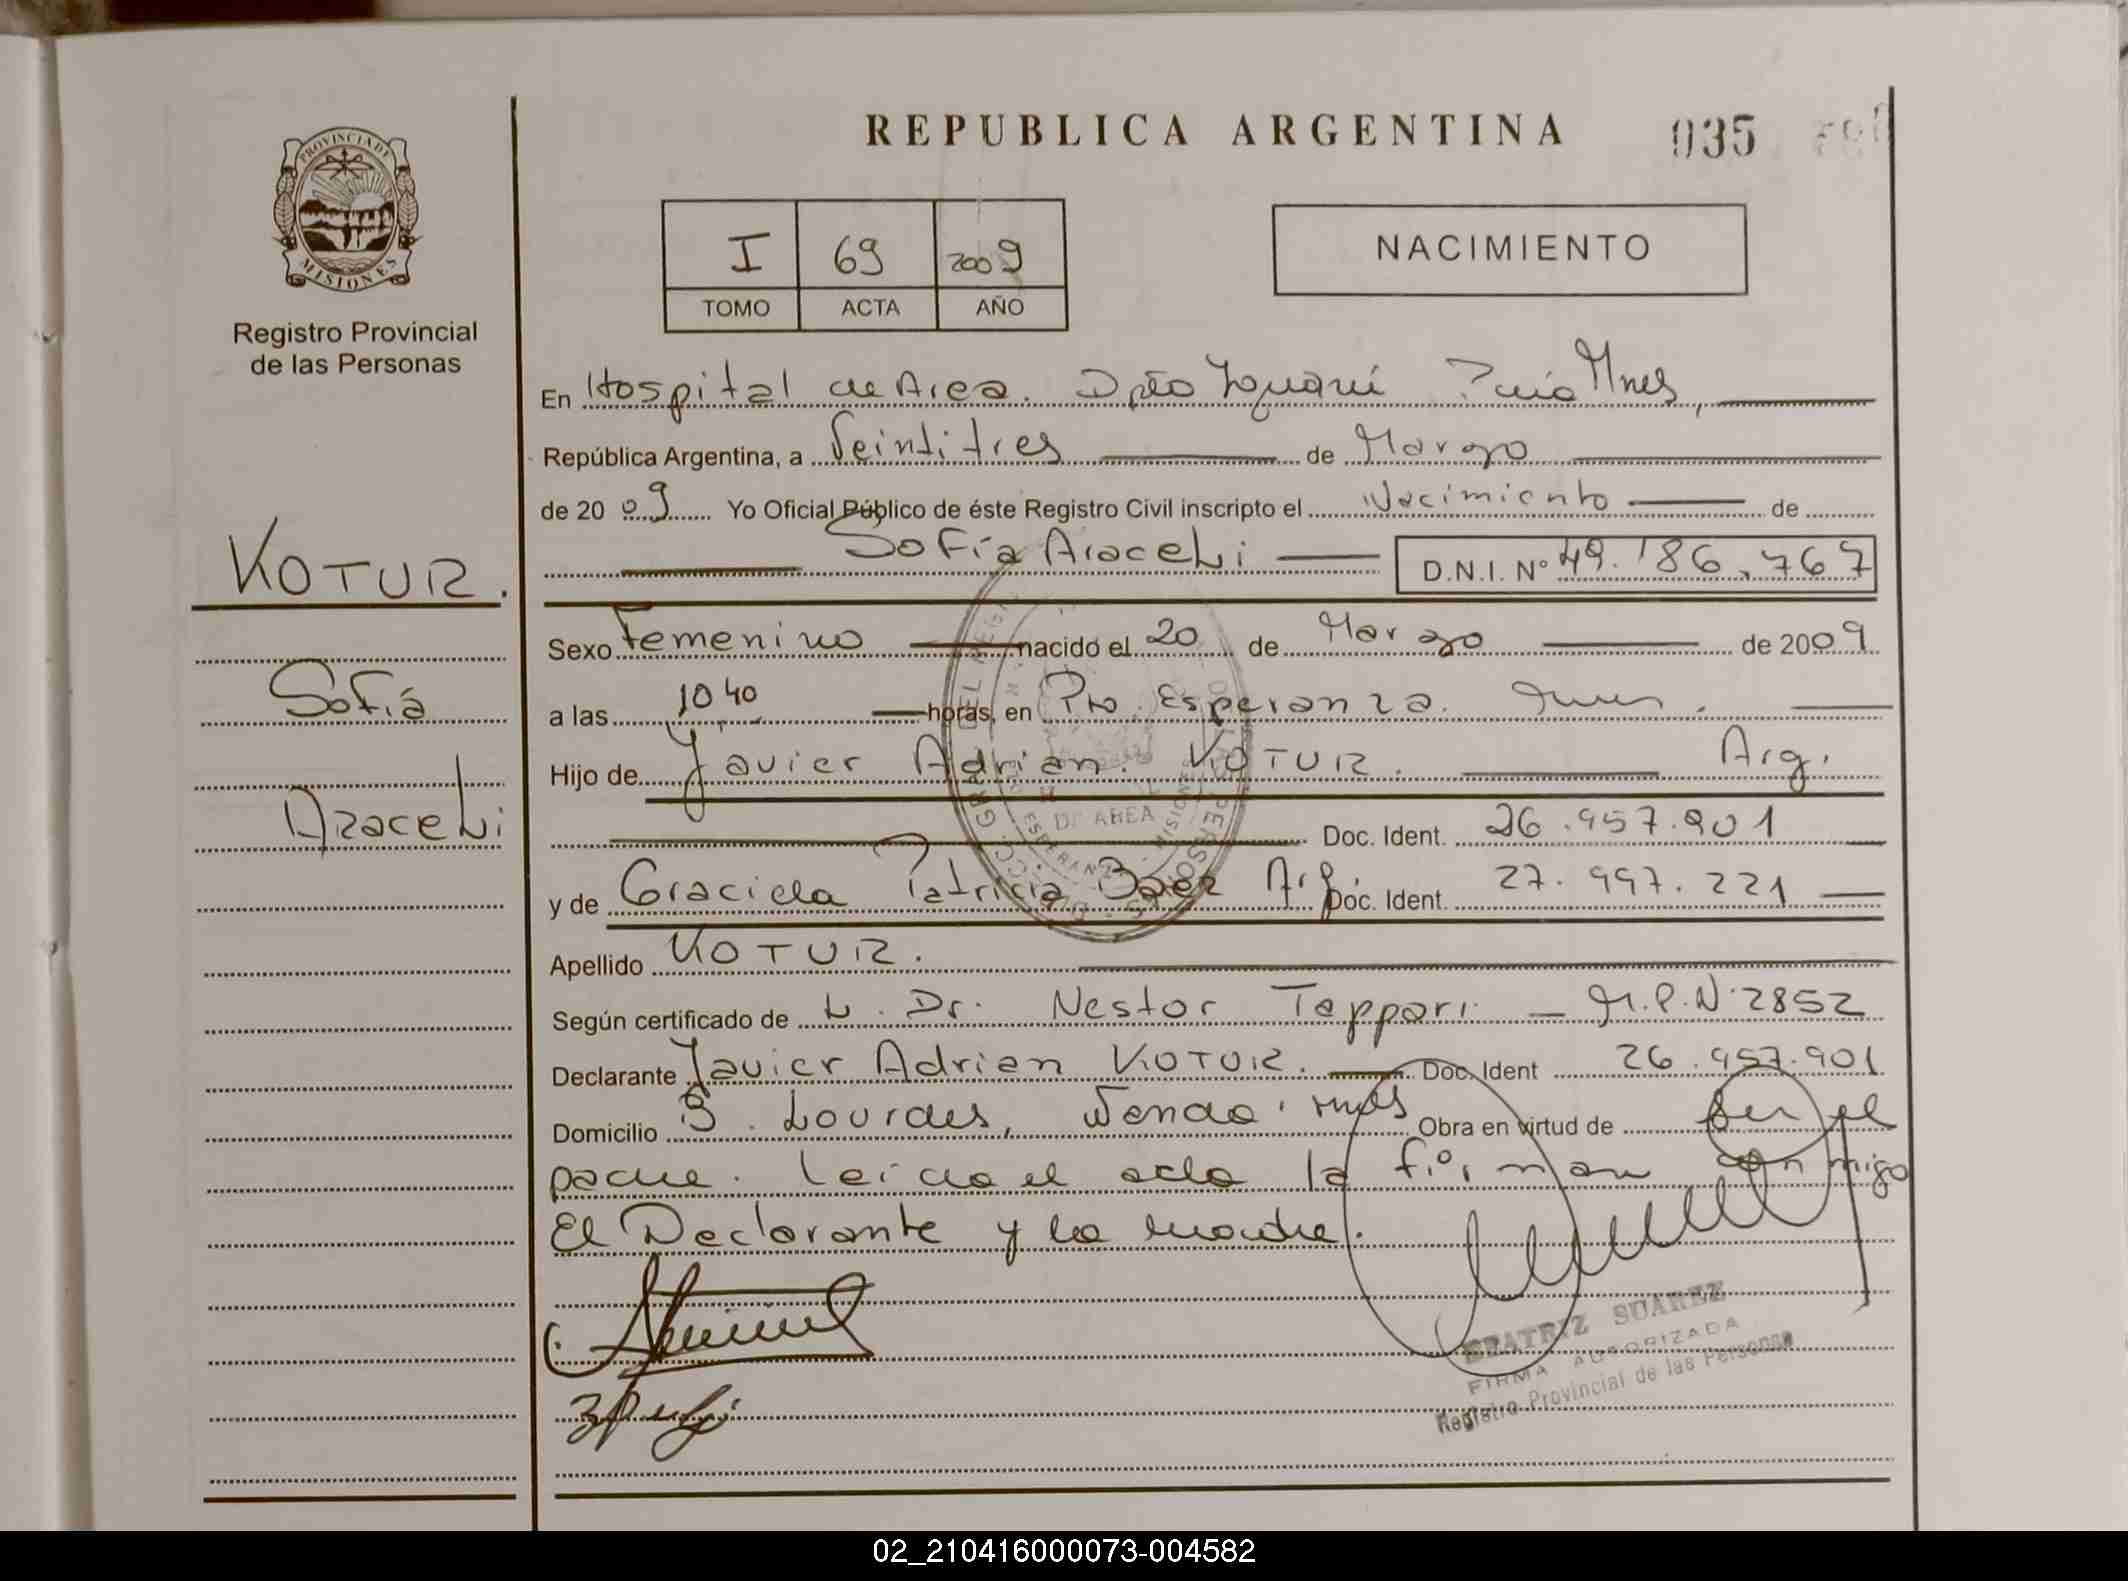 REPUBLICA ARGENTINA
035
PROVINCIA DE
MISIONES
Registro Provincial
de las Personas
I 69 2009
TOMO ACTA AÑO
NACIMIENTO
En Hospital de Area. Dpto Iguazú Mnes,
República Argentina, a Veintitres de Marzo
de 2009 Yo Oficial Público de éste Registro Civil inscripto el Nacimiento de
Sofía Araceli D.N.I. Nº 49.186.767
KOTUR.
Sofía
Araceli
Sexo Femenino nacido el 20 de Marzo de 2009
a las 10 40 horas, en Pto. Esperanza. Mnes.
Hijo de Javier Adrian. KOTUR. Arg.
Doc. Ident. 26.957.901
y de Graciela Patricia Baez Arg. Doc. Ident. 27.997.221
Apellido KOTUR.
Según certificado de L. Dr. Nestor Tappari - M.P.N. 2852
Declarante Javier Adrian KOTUR. Doc. Ident 26.957.901
Domicilio B. Lourdes, Wanda. Mnes Obra en virtud de Ser el
padre. Leida el acta la firman conmigo
El Declarante y la madre.
BEATRIZ SUAREZ
FIRMA AUTORIZADA
Registro Provincial de las Personas
02_210416000073-004582